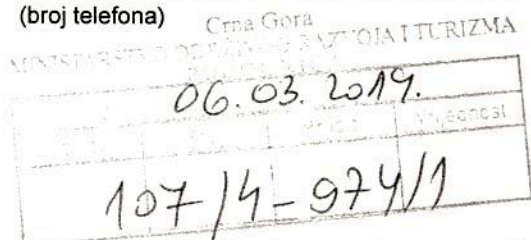 (broj telefona)
Crna Gora
MINISTARSTVO ODRŽIVOG RAZVOJA I TURIZMA
06.03.2019.
Vrijednost
107/4-974/1